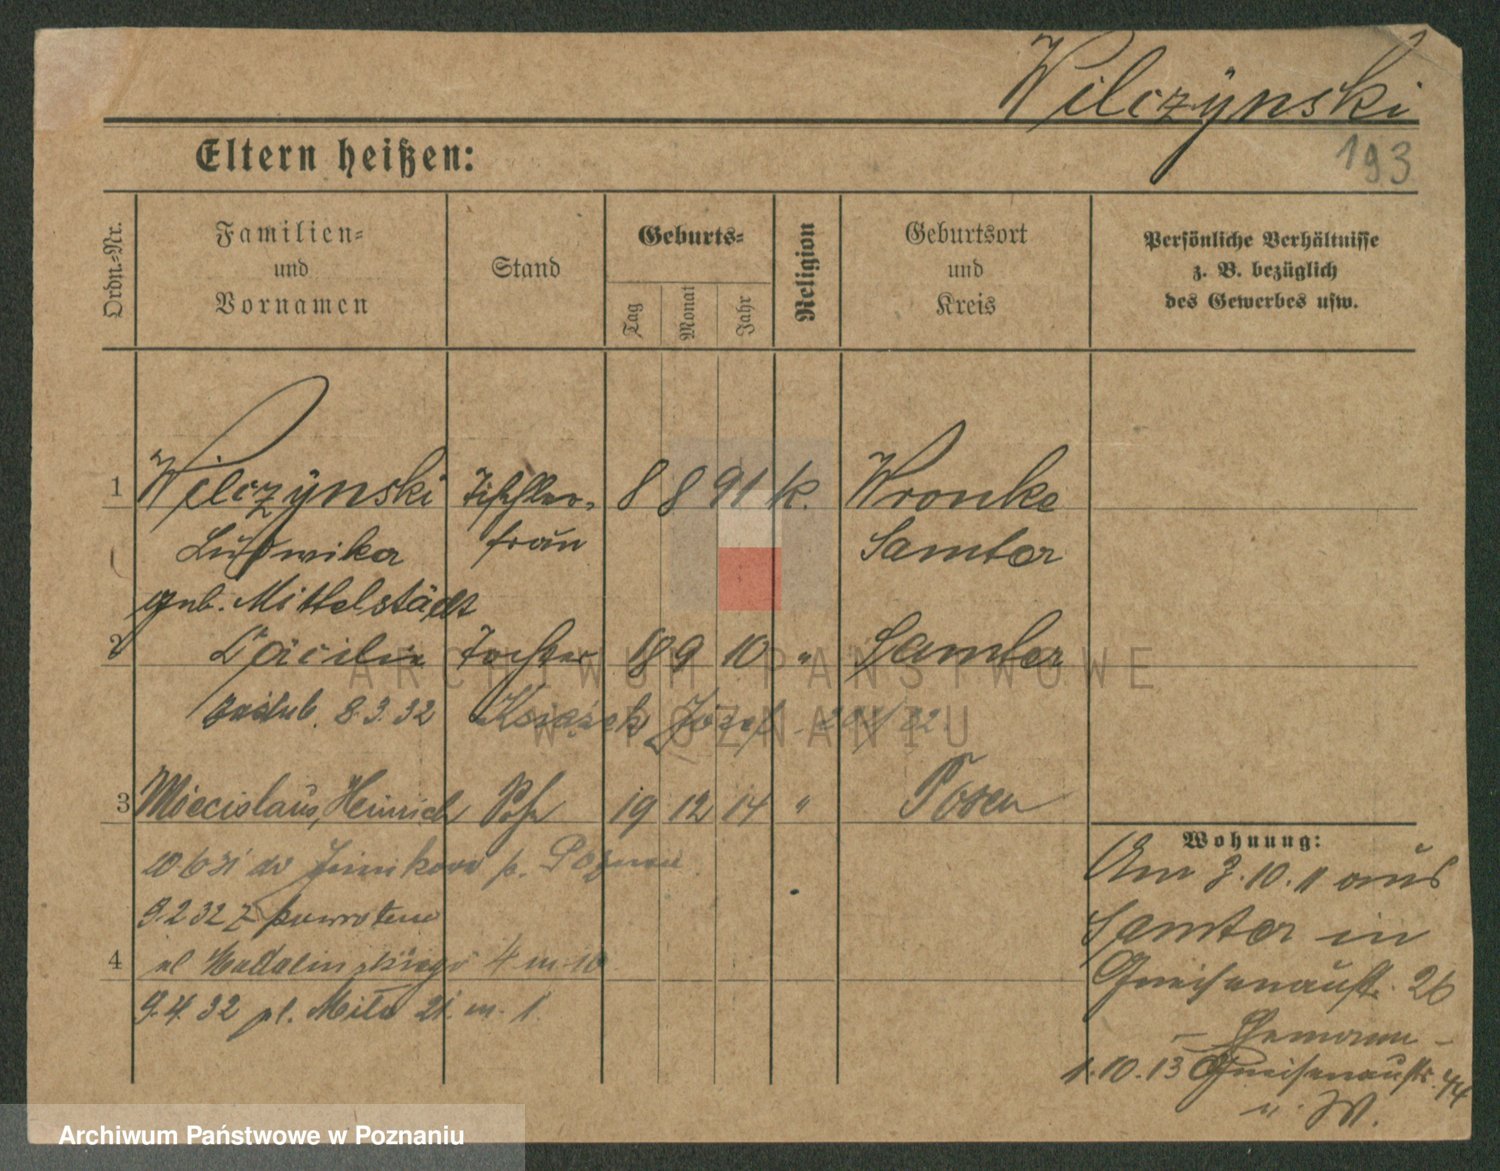 Wilczynski
193
Eltern heißen:
Ordn.-Nr.
Familien-
und
Vornamen
Stand
Geburts-
Tag
Monat
Jahr
Religion
Geburtsort
und
Kreis
Persönliche Verhältnisse
z. B. bezüglich
des Gewerbes usw.
1 Wilczynski Tischler- 8 8 91 k. Wronke
Ludwika frau Samter
geb. Mittelstädt
2 Cäcilie Tochter 18 9 10 " Samter
zaślub. 8.3.32 Książek Józef
3 Miecislaus, Heinrich Sohn 19 12 14 " Posen
do Junikowo p. Poznań
9.2.32 z powrotem
4 ul Madalinskiego 4 m 10
9.4.32 pl. 21. m. 1.
Wohnung:
Am 3.10.11 aus
Samter in
Gneisenaustr. 26
- Ehemann -
1.10.13 Gneisenaustr. 44
u. W.
ARCHIWUM PAŃSTWOWE
W POZNANIU
Archiwum Państwowe w Poznaniu